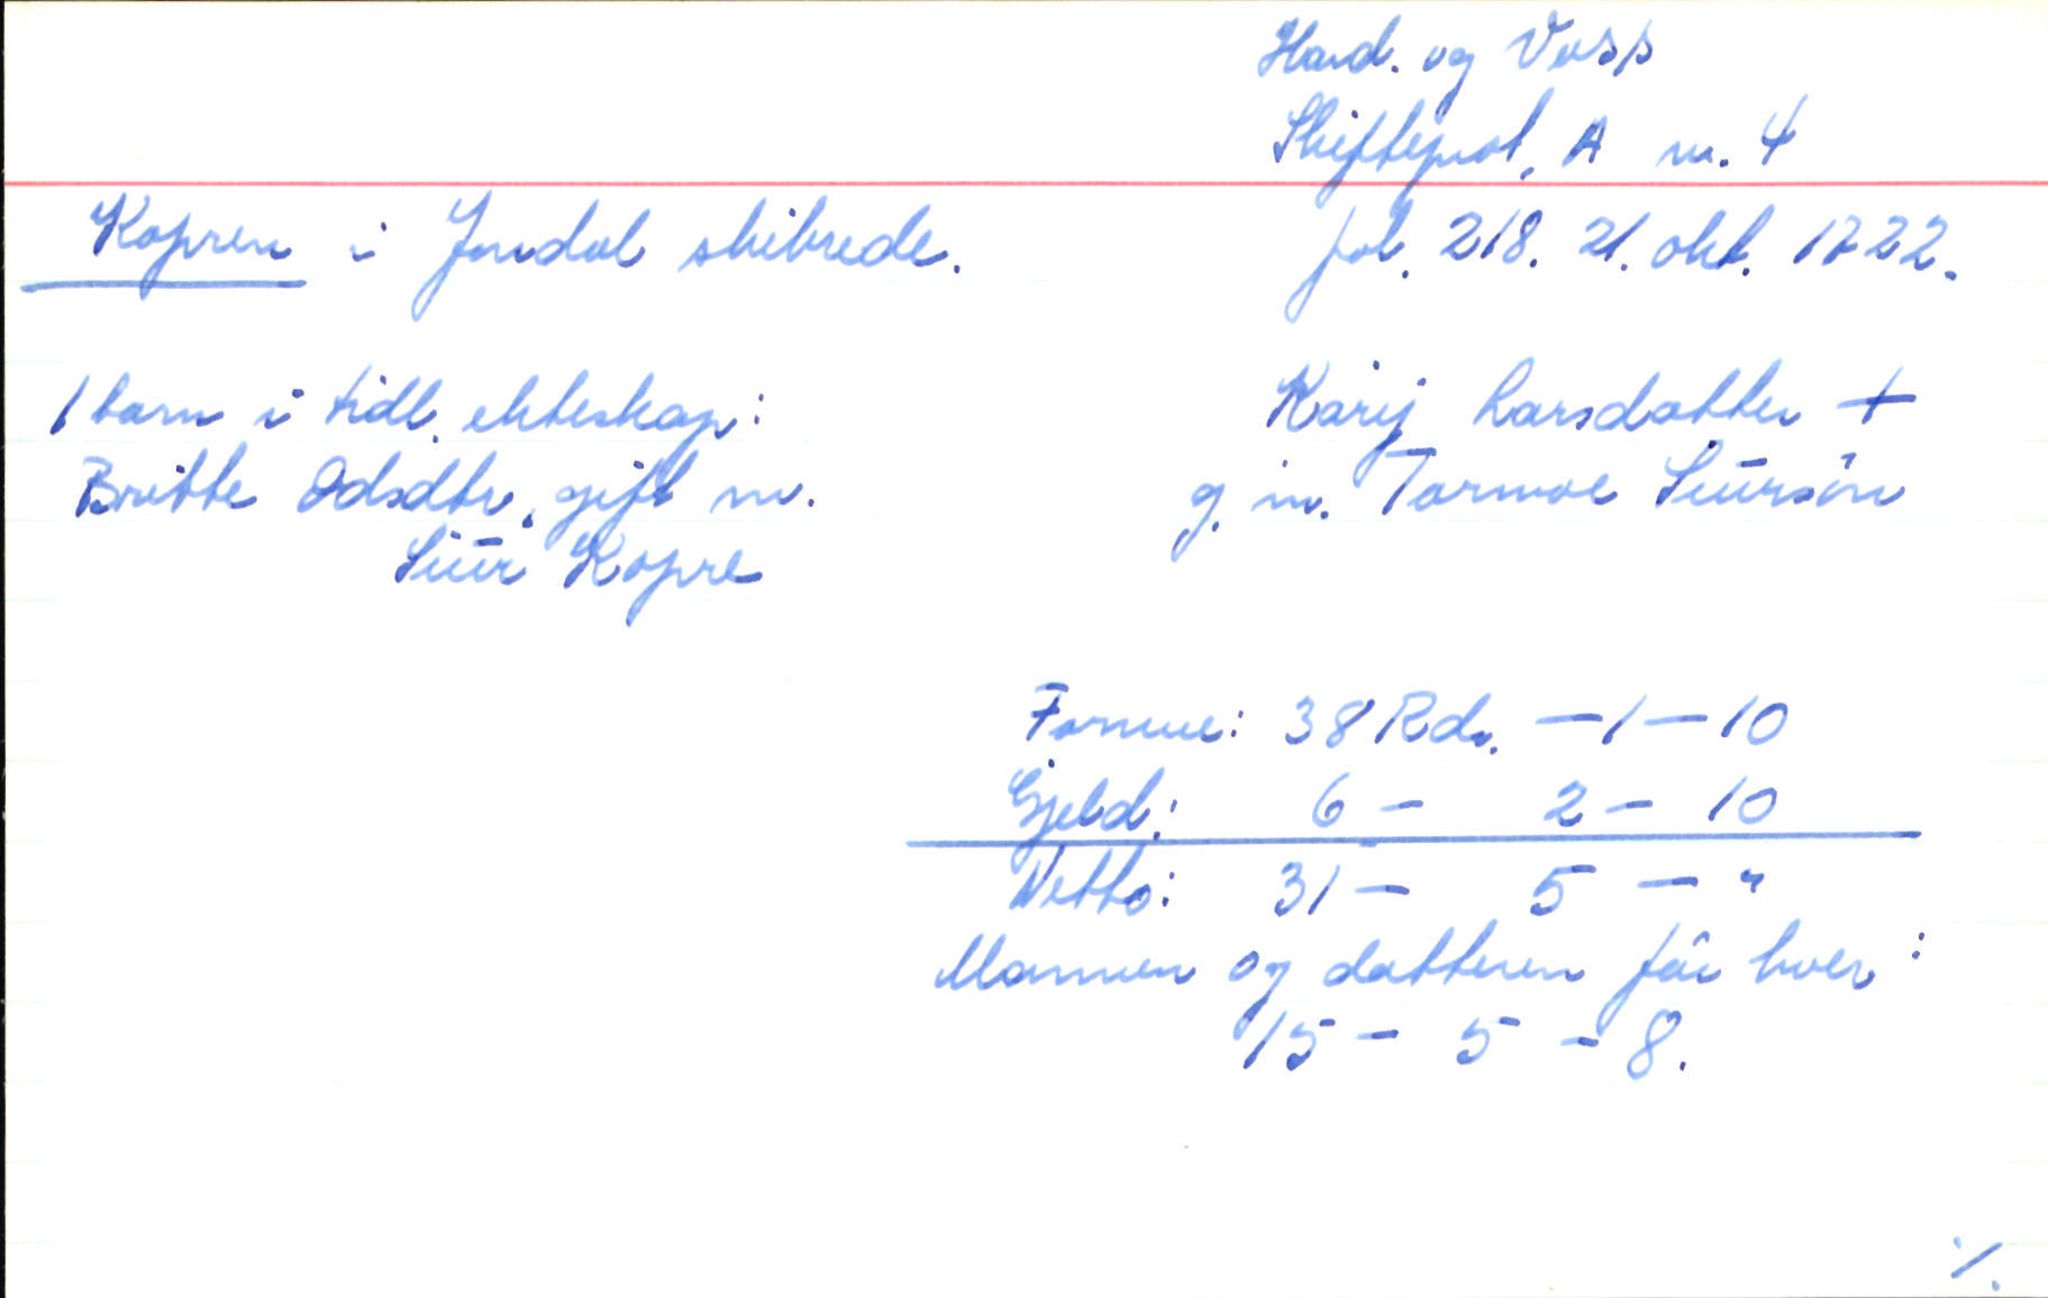 Hard. og Voss
Skifteprot. A nr. 4
Kopren i Jondal skibrede.
fol. 218. 21. okt. 1722.
1 barn i tidl. ekteskap:
Britte Odsdtr. gift m.
Siur Kopre
Karij Larsdatter +
g. m. Tormoe Siursön
Formue: 38 Rdr. - 1 - 10
Gjeld: 6 - 2 - 10
Netto: 31 - 5 - "
Mannen og datteren får hver:
15 - 5 - 8.
·/.